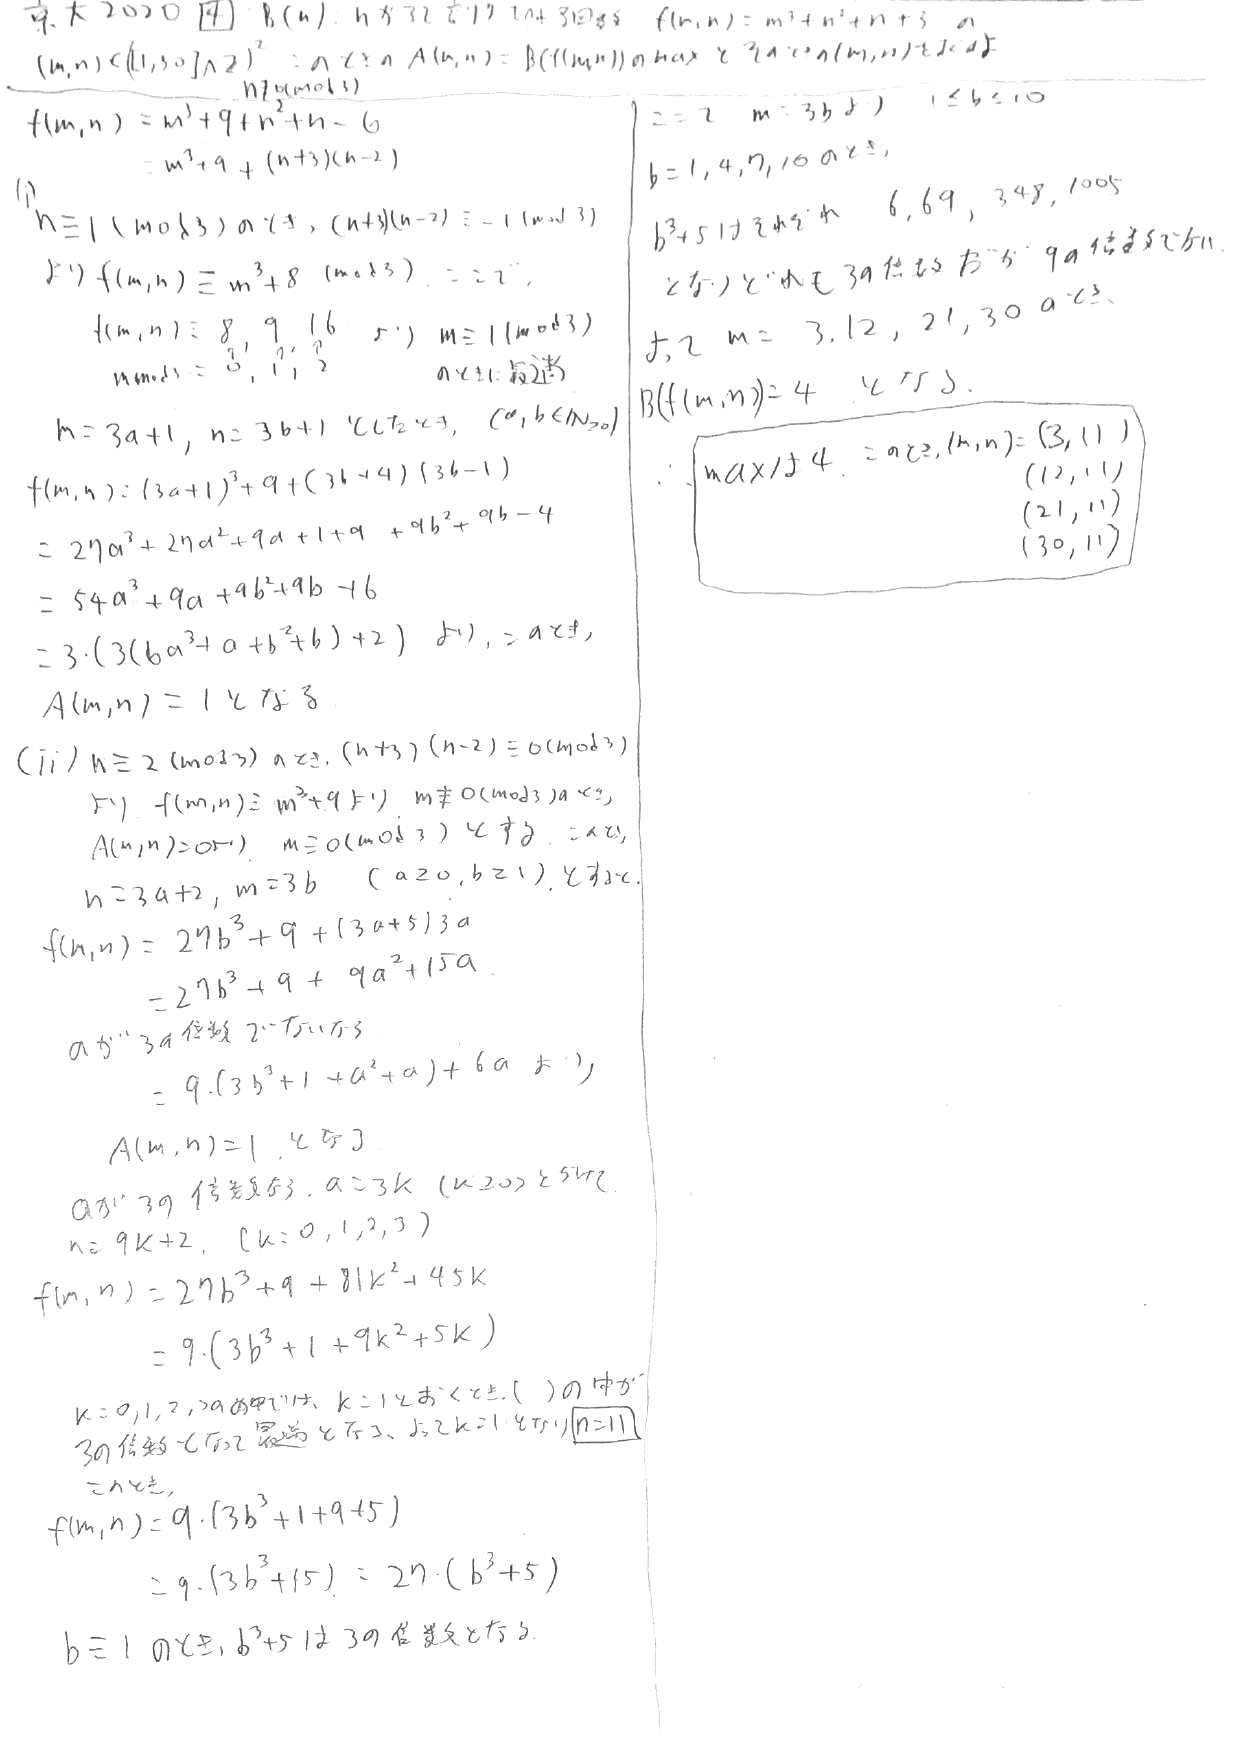 京大2020 [4] B(n): nが3で割りきれる回数 f(m,n)=m³+n²+n+3 の
(m,n)∈([1,30]∧Z)² このときの A(m,n)=B(f(m,n))のmaxと そのときの(m,n)を求めよ
n≢0(mod3)
f(m,n) = m³+9+n²+n-6
= m³+9+(n+3)(n-2)
(i)
n≡1(mod3)のとき, (n+3)(n-2)≡-1(mod3)
より f(m,n)≡m³+8 (mod3) ここで,
f(m,n)≡8, 9, 16 より m≡1(mod3)
m mod3 = 0, 1, 2 のときに最適
m=3a+1, n=3b+1 としたとき, (a,b∈ℕ≥0)
f(m,n)=(3a+1)³+9+(3b+4)(3b-1)
= 27a³+27a²+9a+1+9+9b²+9b-4
= 54a³+9a+9b²+9b+6
=3·(3(6a³+a+b²+b)+2) より, このとき,
A(m,n)=1となる
(ii) n≡2(mod3)のとき, (n+3)(n-2)≡0(mod3)
より f(m,n)≡m³+9より m≢0(mod3)のとき,
A(m,n)=0より m≡0(mod3)とする このとき,
n=3a+2, m=3b (a≥0, b≥1)とすると.
f(m,n)= 27b³+9+(3a+5)3a
=27b³+9+9a²+15a
aが3の倍数でないなら
= 9·(3b³+1+a²+a)+6a より,
A(m,n)=1 となる
aが3の倍数なら, a=3k (k≥0)とおいて
n=9k+2, (k=0,1,2,3)
f(m,n)=27b³+9+81k²+45k
=9·(3b³+1+9k²+5k)
k=0,1,2,3の中では, k=1とおくとき, ( )の中が
3の倍数となって最適となる、よってk=1となり n=11
このとき,
f(m,n)=9·(3b³+1+9+5)
=9·(3b³+15) = 27·(b³+5)
b≡1のとき, b³+5は3の倍数となる.
ここで m=3bより 1≤b≤10
b=1,4,7,10のとき,
b³+5はそれぞれ 6, 69, 348, 1005
となりどれも3の倍数だが9の倍数でない.
よって m=3, 12, 21, 30のとき、
B(f(m,n))=4 となる.
∴ maxは4. このとき, (m,n)=(3,11)
(12,11)
(21,11)
(30,11)